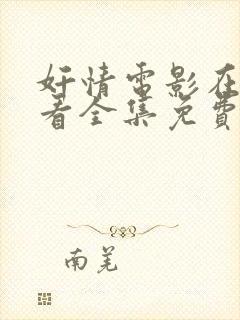 奸情電影在
看全集免費
南羌